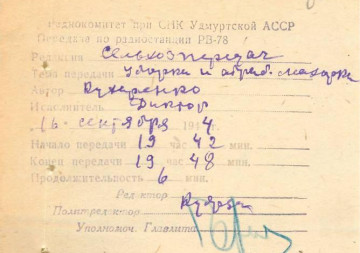 Радиокомитет при СНК Удмуртской АССР
Передача по радиостанции РВ-78
Редакция Сельхозпередач
Тема передачи Уборка и обраб. махорки
Автор Кухаренко
Исполнитель Диктор
16 сентября 1944
Начало передачи 19 час 42 мин.
Конец передачи 19 час 48 мин.
Продолжительность 6 мин.
Редактор
Политредактор
Уполномоч. Главлита